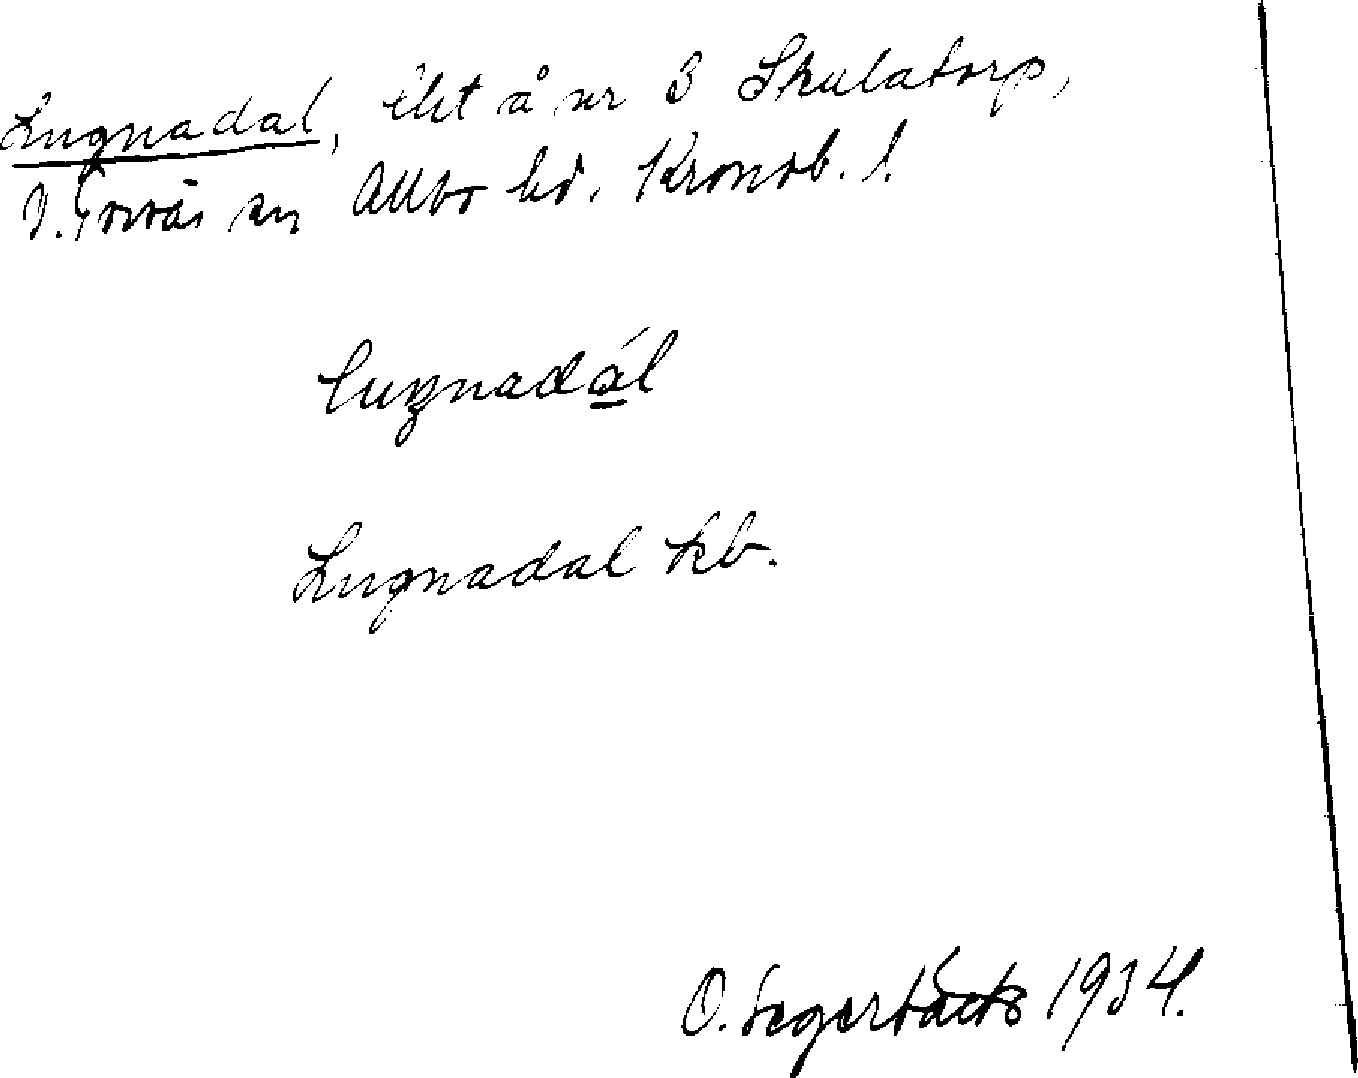 Lugnadal, lht å nr 3 Skulatorp,
V. Torsås sn Allbo hd. Kronob. l.
luŋnadál
Lugnadal kb.
O. Segerbäck 1934.